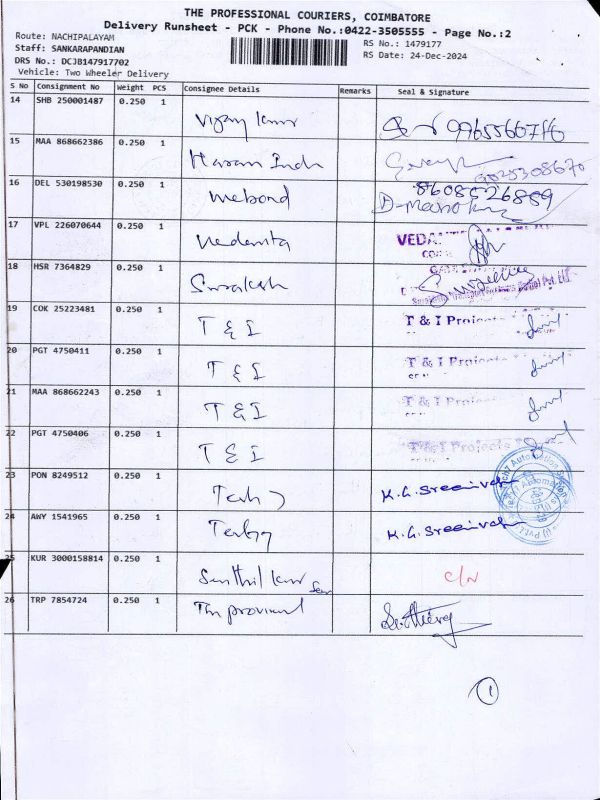 THE PROFESSIONAL COURIERS, COIMBATORE
Delivery Runsheet - PCK - Phone No.:0422-3505555 - Page No.:2
Route: NACHIPALAYAM
RS No.: 1479177
Staff: SANKARAPANDIAN
RS Date: 24-Dec-2024
DRS No.: DCJB147917702
Vehicle: Two Wheeler Delivery
S No Consignment No Weight PCS Consignee Details Remarks Seal & Signature
14 SHB 250001487 0.250 1 Vijay kumr
15 MAA 868662386 0.250 1
16 DEL 530198530 0.250 1 mebond 8608526889
17 VPL 226070644 0.250 1 Vedanta
18 HSR 7364829 0.250 1
19 COK 25223481 0.250 1 T & I T & I Projects
20 PGT 4750411 0.250 1 T & I T & I Projects
21 MAA 868662243 0.250 1 T & I T & I Projects
22 PGT 4750406 0.250 1 T & I T & I Projects
23 PON 8249512 0.250 1 K.G. Sreenivas
24 AWY 1541965 0.250 1 K.G. Sreenivas
25 KUR 3000158814 0.250 1 Senthil kumr
26 TRP 7854724 0.250 1
1